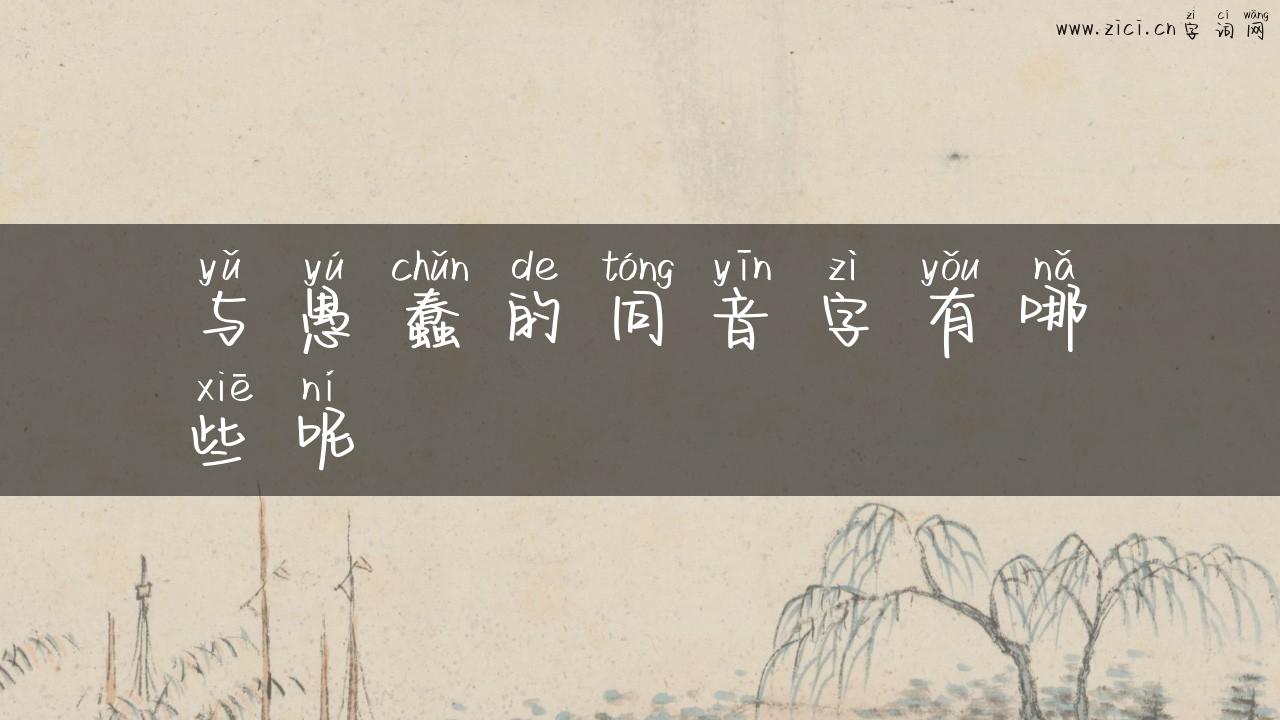 zì cí wǎng
www.zici.cn 字词网
yǔ yú chǔn de tóng yīn zì yǒu nǎ
与愚蠢的同音字有哪
xiē ní
些呢